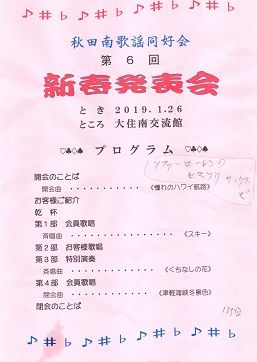 秋田南歌謡同好会
第6回
新春発表会
とき 2019.1.26
ところ 大住南交流館
♡♣♢♠ プログラム ♡♣♢♠
開会のことば
開会曲 《憧れのハワイ航路》
お客様ご紹介
乾杯
第1部 会員歌唱
斉唱曲 《スキー》
第2部 お客様歌唱
第3部 特別演奏
斉唱曲 《くちなしの花》
第4部 会員歌唱
閉会曲 《津軽海峡冬景色》
閉会のことば